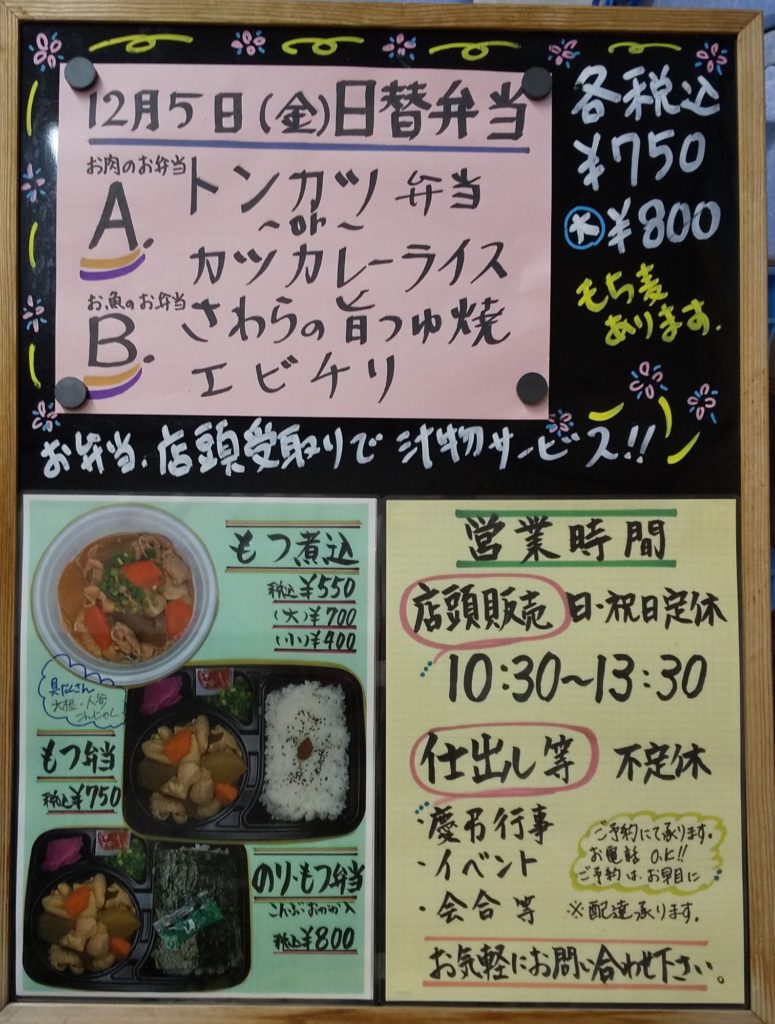 12月5日(金)日替弁当
お肉のお弁当
A.
トンカツ 弁当
~or~
カツカレーライス
お魚のお弁当
B.
さわらの旨つゆ焼
と
エビチリ
各税込
¥750
大 ¥800
もち麦
あります.
お弁当、店頭受取りで 汁物サービス!!
もつ煮込
税込¥550
(大)¥700
(小)¥400
具だくさん
大根・人参
こんにゃく
もつ弁当
税込¥750
のり・もつ弁当
こんぶ・おかか入
税込¥800
営業時間
店頭販売 日・祝日定休
10:30~13:30
仕出し等 不定休
・慶弔行事
・イベント
・会合等
ご予約にて承ります。
お電話 O.K!!
ご予約は、お早目に
※配達承ります。
お気軽にお問い合わせ下さい。